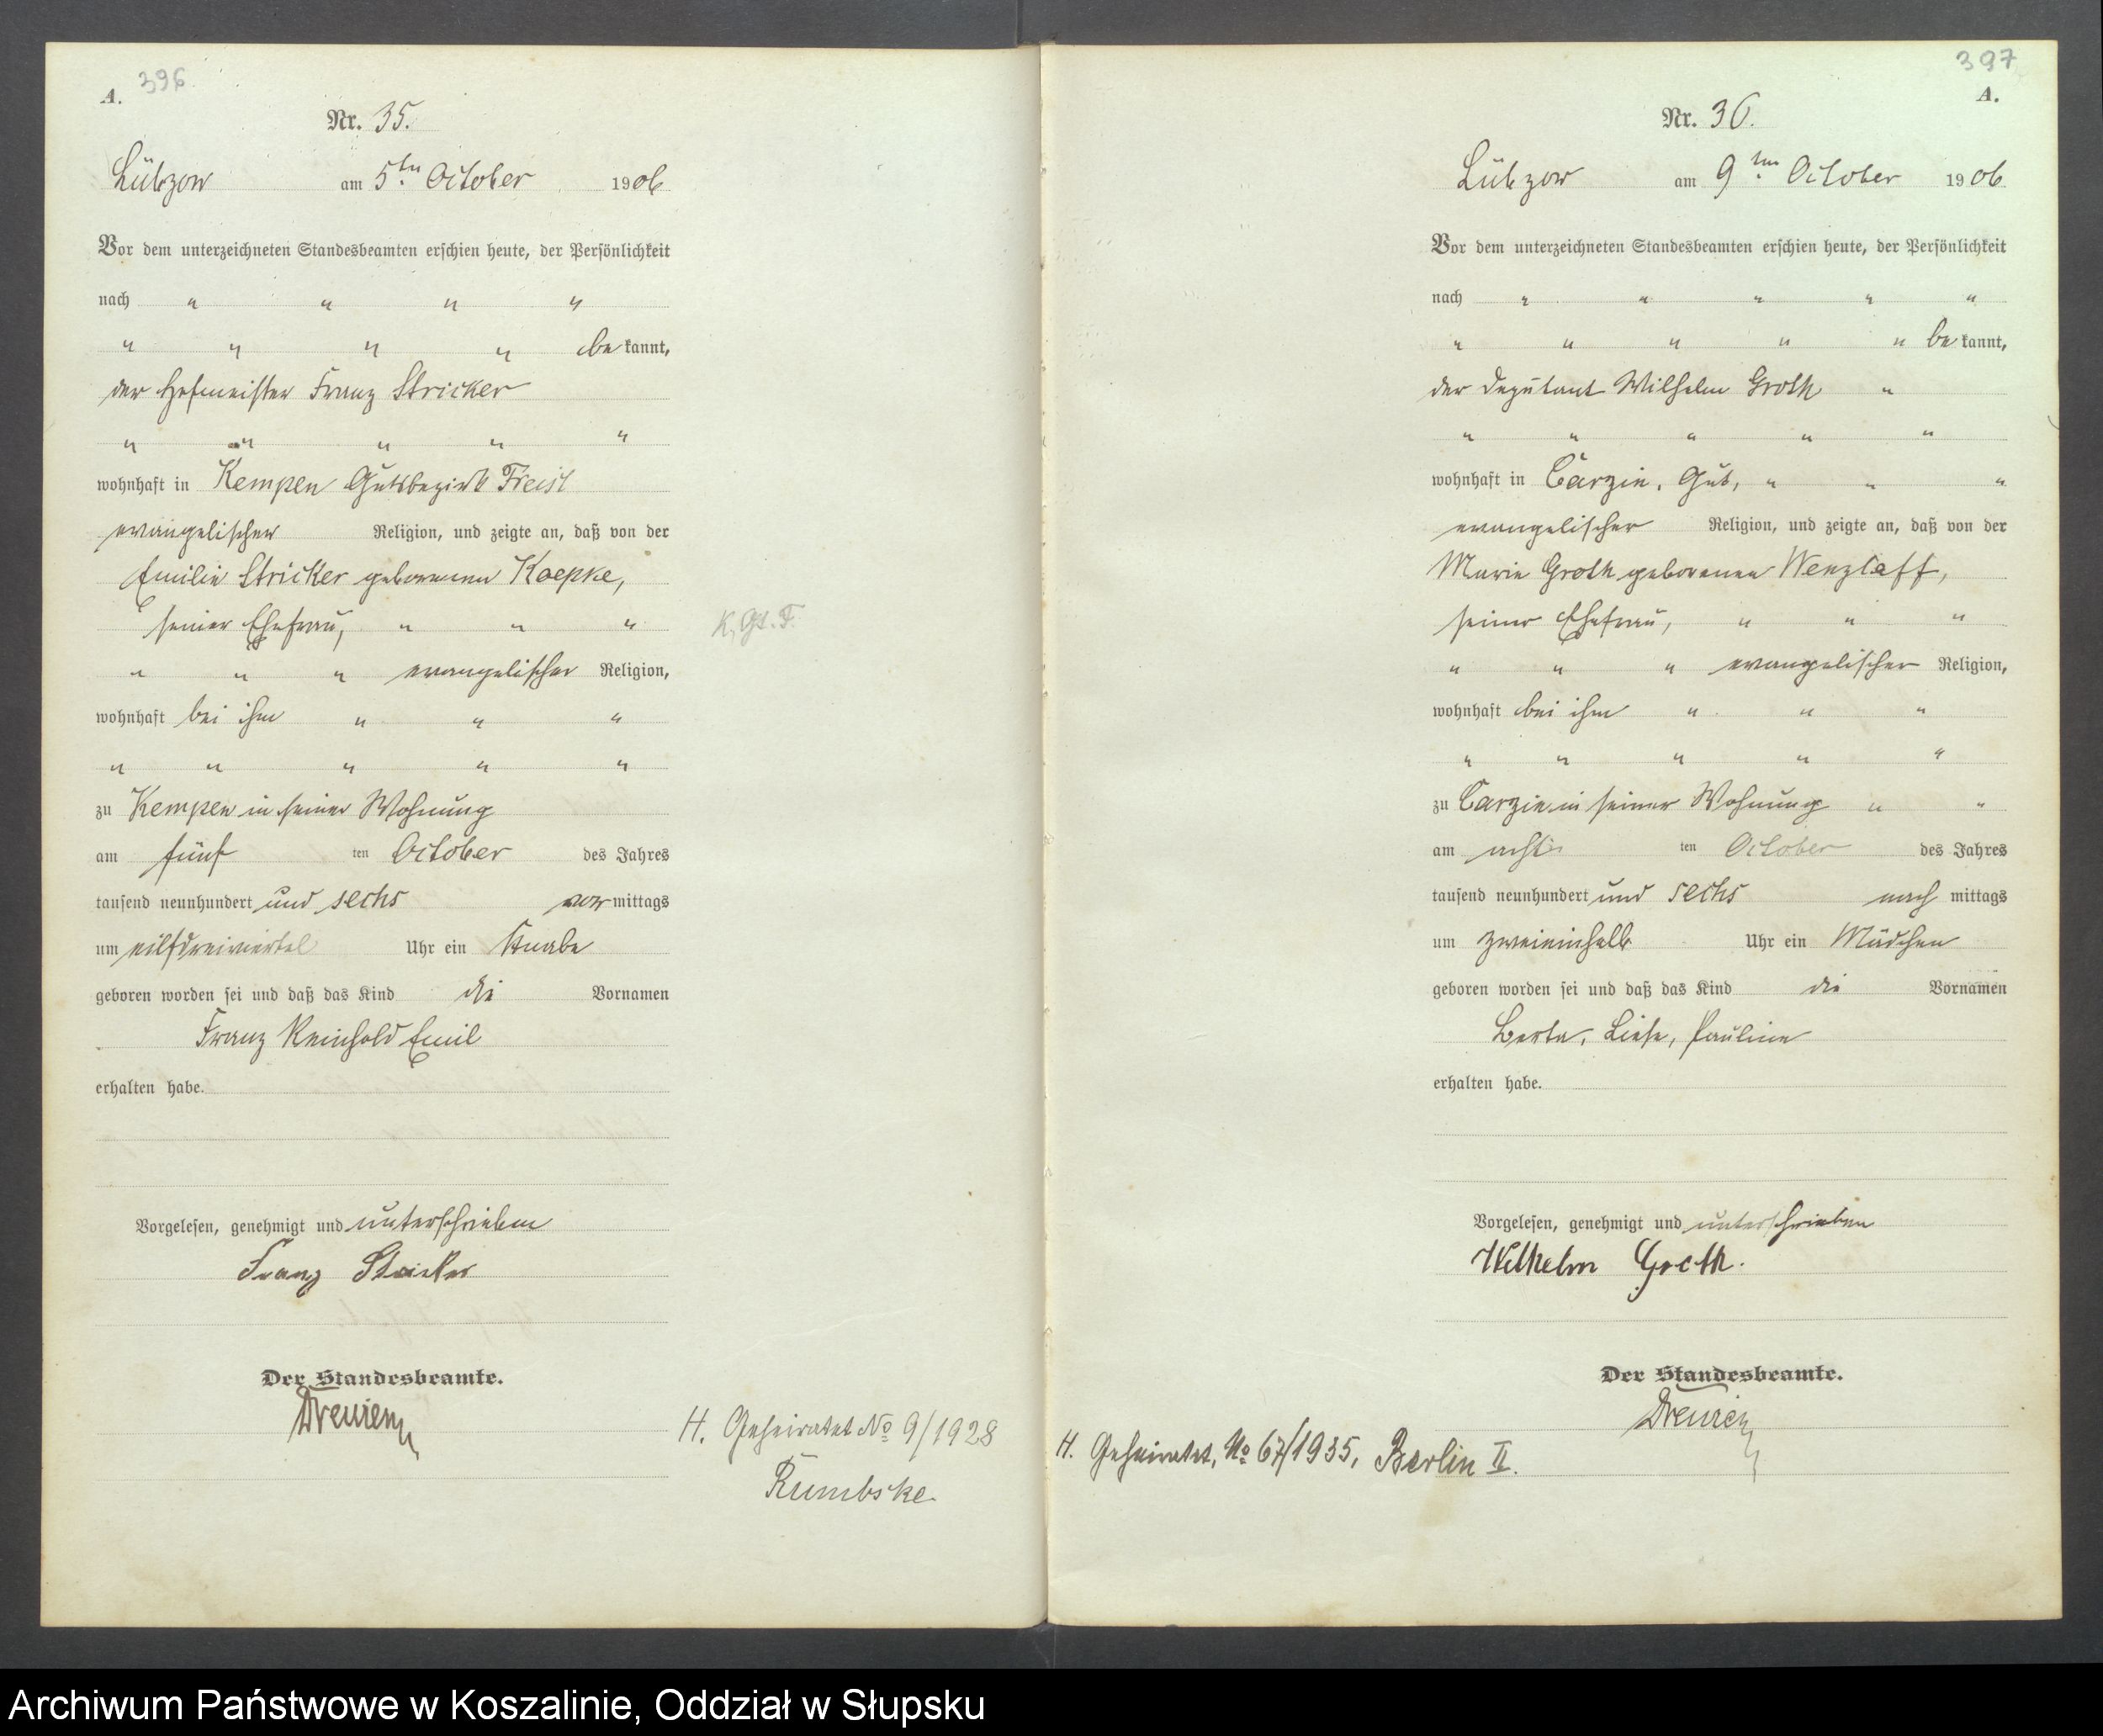 396
A.
Nr. 35.
Lübzow am 5ten October 1906
Vor dem unterzeichneten Standesbeamten erschien heute, der Persönlichkeit
nach " " " "
" " " " be kannt,
der Hofmeister Franz Stricker
" " " " "
wohnhaft in Kempen Gutsbezirk Freist
evangelischer Religion, und zeigte an, daß von der
Emilie Stricker geborenen Koepke,
seiner Ehefrau, " " "
K. Gt. F.
" " " evangelischer Religion,
wohnhaft bei ihm " " "
" " " " "
zu Kempen in seiner Wohnung
am fünf ten October des Jahres
tausend neunhundert und sechs vor mittags
um eilfdreiviertel Uhr ein Knabe
geboren worden sei und daß das Kind die Vornamen
Franz Reinhold Emil
erhalten habe.
Vorgelesen, genehmigt und unterschrieben
Franz Stricker
Der Standesbeamte.
H. Geheiratet No 9/1928
Rumbske
397
A.
Nr. 36.
Lübzow am 9ten October 1906
Vor dem unterzeichneten Standesbeamten erschien heute, der Persönlichkeit
nach " " " " "
" " " " " be kannt,
der Deputant Wilhelm Groth "
" " " " "
wohnhaft in Carzin, Gut, " " "
evangelischer Religion, und zeigte an, daß von der
Marie Groth geborenen Wenzlaff,
seiner Ehefrau, " " "
" " " evangelischer Religion,
wohnhaft bei ihm " " "
" " " " "
zu Carzin in seiner Wohnung " "
am acht ten October des Jahres
tausend neunhundert und sechs nach mittags
um zweieinhalb Uhr ein Mädchen
geboren worden sei und daß das Kind die Vornamen
Berta, Liese, Pauline
erhalten habe.
Vorgelesen, genehmigt und unterschrieben
Wilhelm Groth.
Der Standesbeamte.
H. Geheiratet, No 67/1935, Berlin II.
Archiwum Państwowe w Koszalinie, Oddział w Słupsku